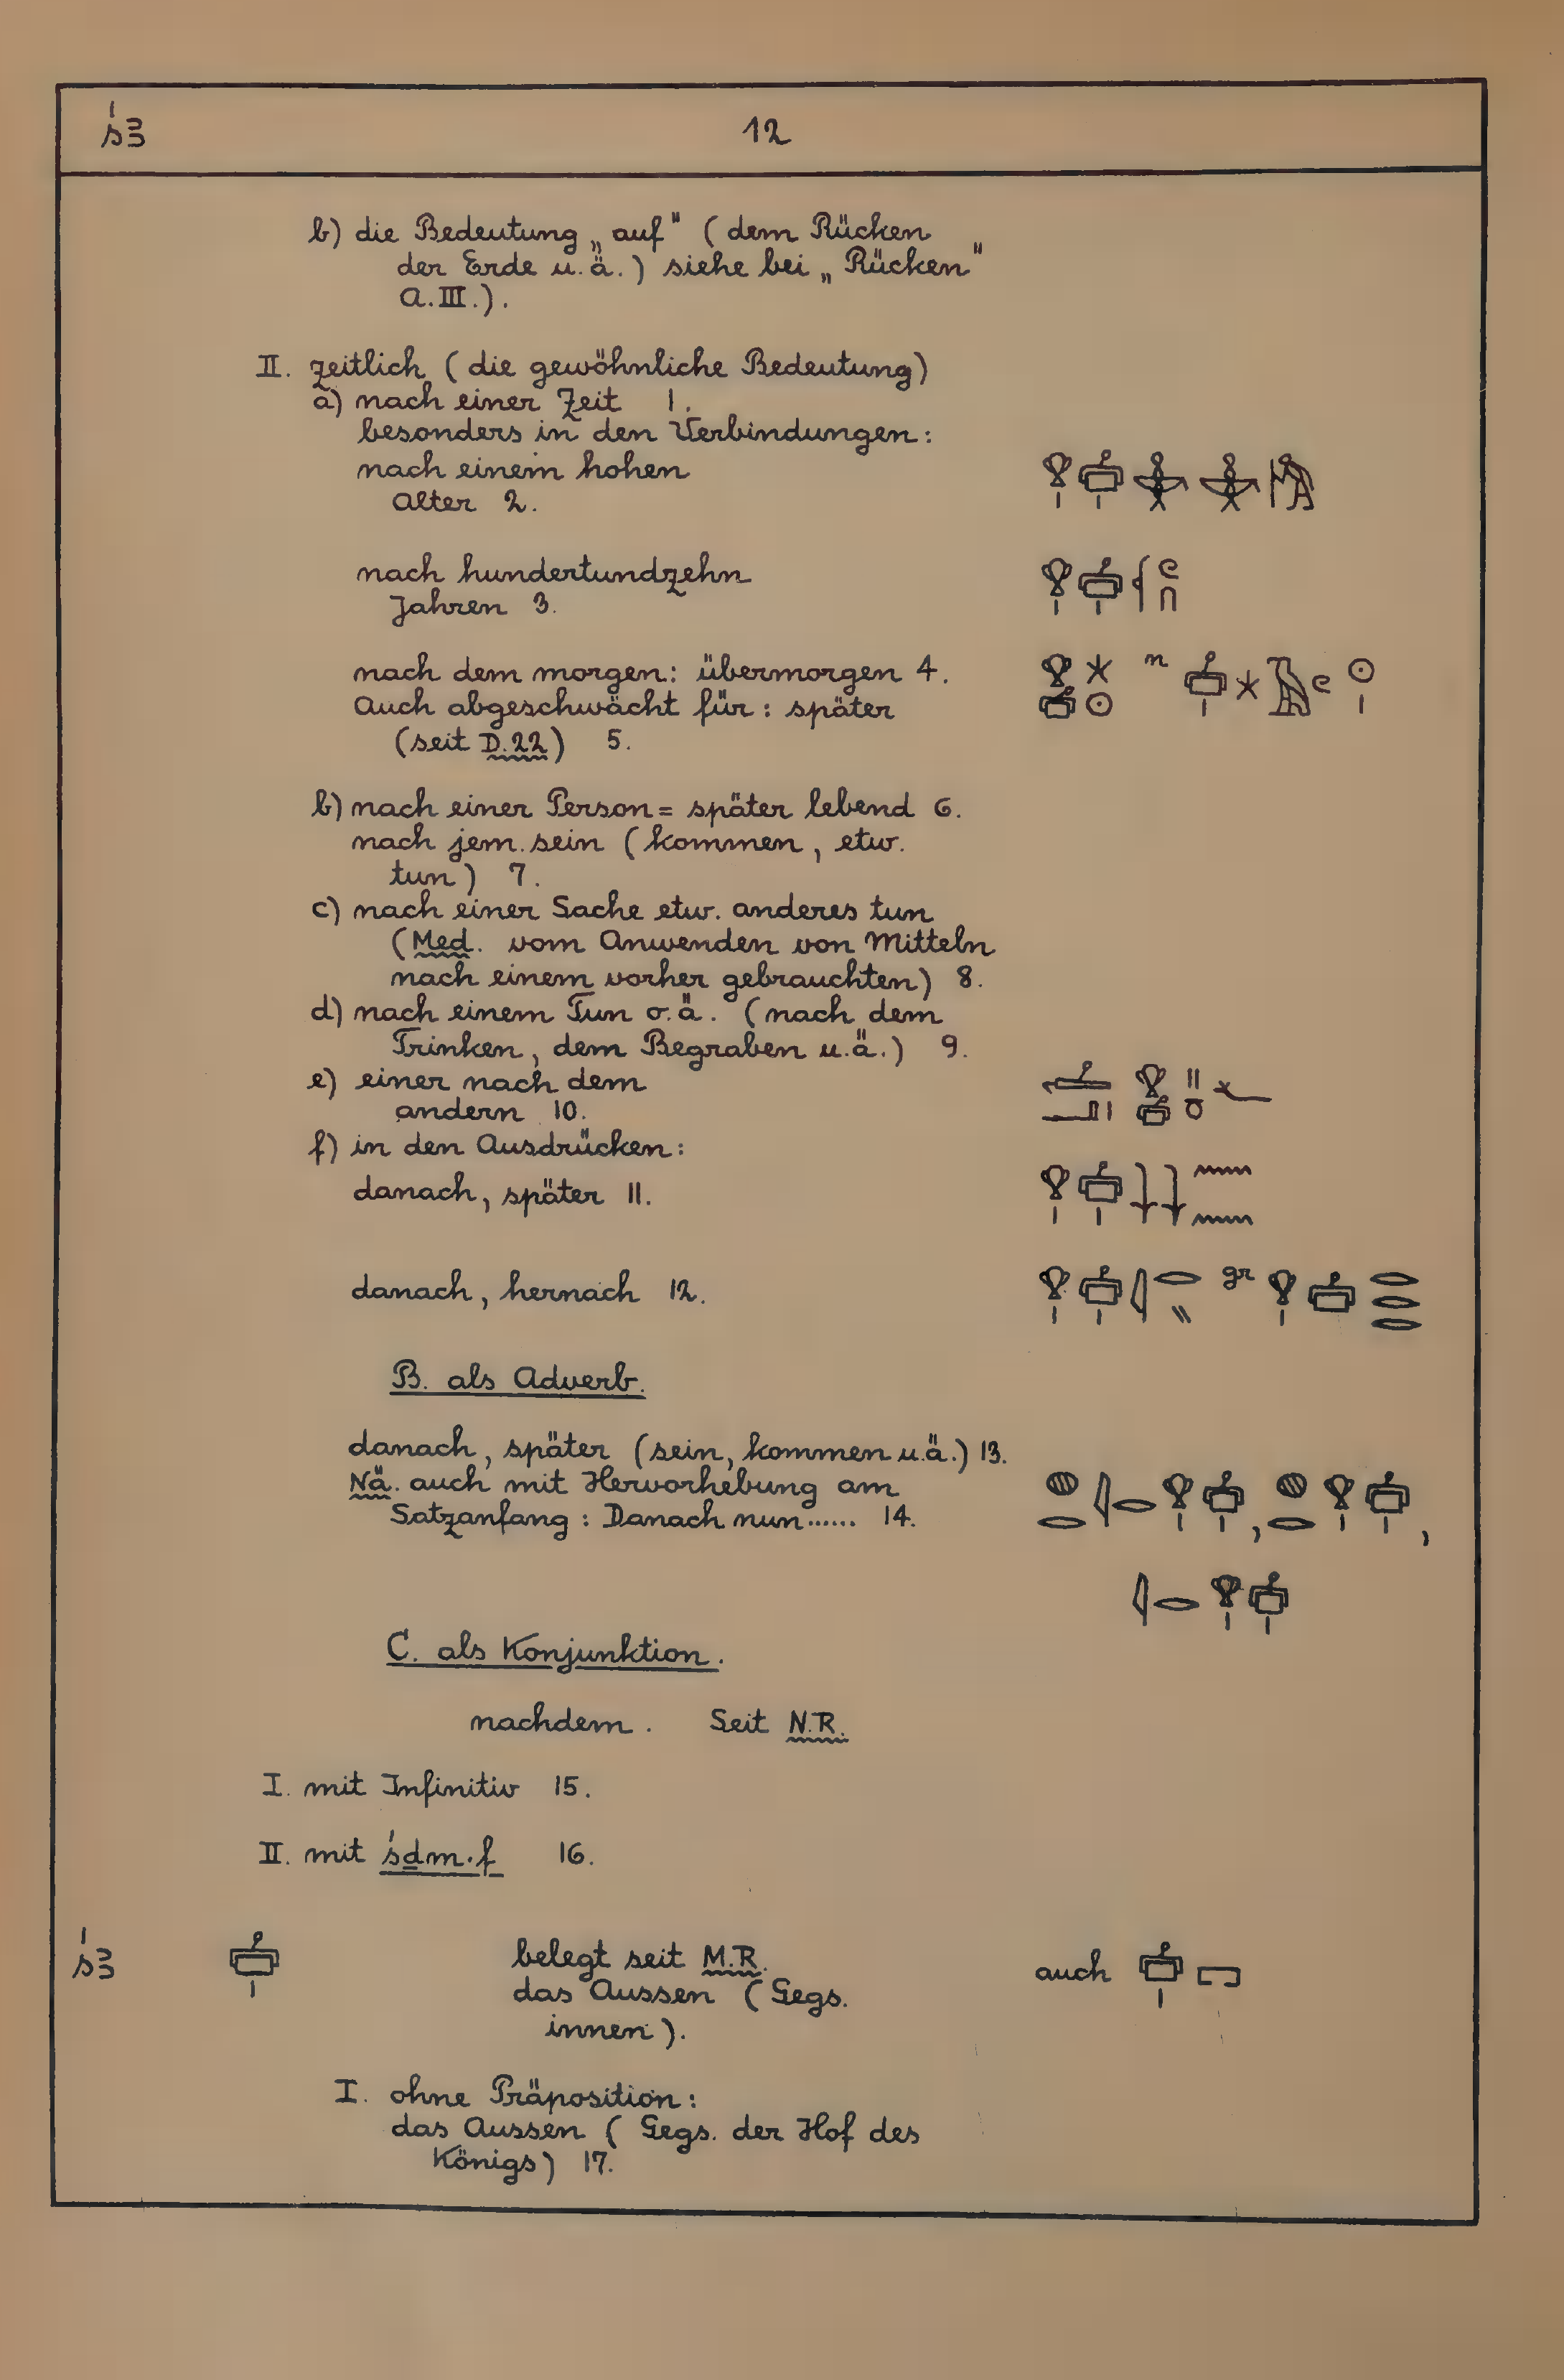 śꜣ 12
b) die Bedeutung „auf" (dem Rücken
der Erde u.ä.) siehe bei „Rücken"
A.III.).
II. zeitlich (die gewöhnliche Bedeutung)
a) nach einer Zeit 1.
besonders in den Verbindungen:
nach einem hohen
Alter 2.
nach hundertundzehn
Jahren 3.
nach dem morgen: übermorgen 4.
Auch abgeschwächt für: später
(seit D.22) 5.
b) nach einer Person = später lebend 6.
nach jem. sein (kommen, etw.
tun) 7.
c) nach einer Sache etw. anderes tun
(Med. vom Anwenden von Mitteln
nach einem vorher gebrauchten) 8.
d) nach einem Tun o.ä. (nach dem
Trinken, dem Begraben u.ä.) 9.
e) einer nach dem
andern 10.
f) in den Ausdrücken:
danach, später 11.
danach, hernach 12. gr
B. als Adverb.
danach, später (sein, kommen u.ä.) 13.
Nä. auch mit Hervorhebung am
Satzanfang: Danach nun...... 14.
C. als Konjunktion.
nachdem. Seit N.R.
I. mit Infinitiv 15.
II. mit śḏm.f 16.
śꜣ belegt seit M.R. auch
das Aussen (Gegs.
innen).
I. ohne Präposition:
das Aussen (Gegs. der Hof des
Königs) 17.